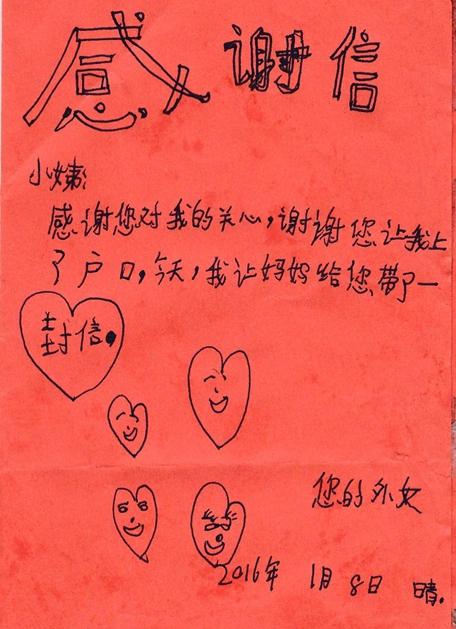 感谢信
小姨:
感谢您对我的关心,谢谢您让我上
了户口,今天,我让妈妈给您带了一
封信。
您的外女
2016年 1月 8日 晴.